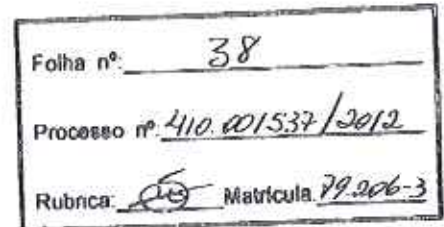 Folha nº: 38
Processo nº 410.001537/2012
Rubrica: Matrícula 79.206-3